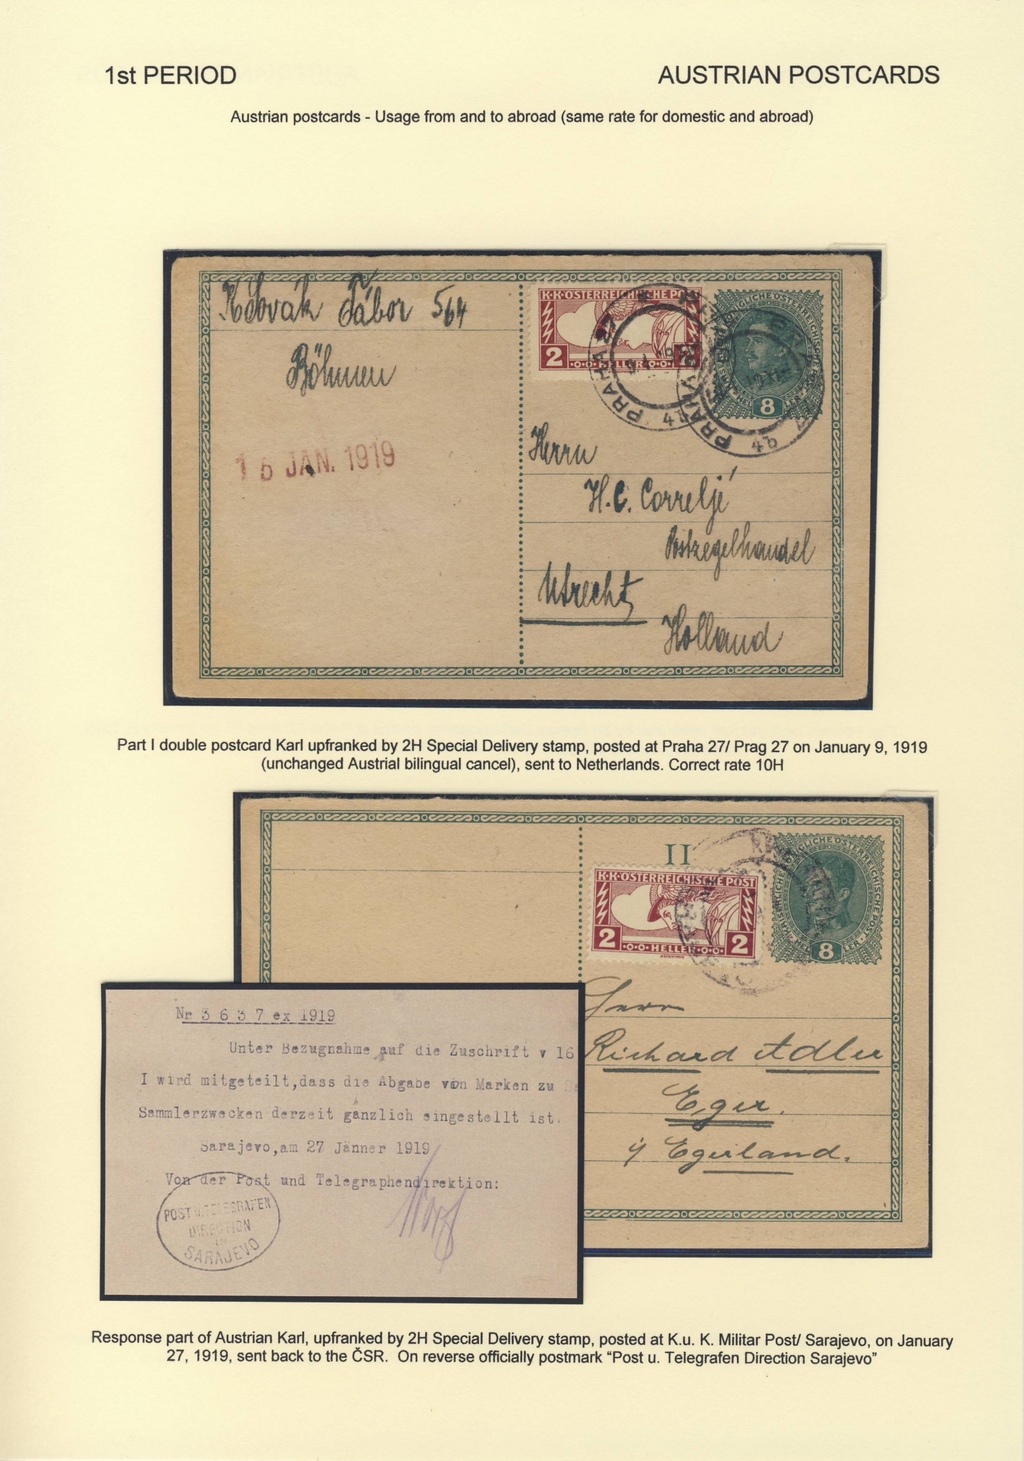 1st PERIOD
AUSTRIAN POSTCARDS
Austrian postcards - Usage from and to abroad (same rate for domestic and abroad)
Novák Tábor 564
Böhmen
15 JAN. 1919
K·K·ÖSTERREICHISCHE POST
2 HELLER 2
8
PRAHA 27
Herrn
H. C. Correljé
Postzegelhandel
Utrecht,
Holland
Part I double postcard Karl upfranked by 2H Special Delivery stamp, posted at Praha 27/ Prag 27 on January 9, 1919
(unchanged Austrial bilingual cancel), sent to Netherlands. Correct rate 10H
II
K·K·ÖSTERREICHISCHE POST
2 HELLER 2
8
Herrn
Richard Adler
Eger.
i/ Egerland.
Nr 3 6 3 7 ex 1919
Unter Bezugnahme auf die Zuschrift v 16
I wird mitgeteilt,dass die Abgabe von Marken zu
Sammlerzwecken derzeit gänzlich eingestellt ist.
Sarajevo,am 27 Jänner 1919
Von der Post und Telegraphendirektion:
POST U. TELEGRAFEN
DIRECTION
IN
SARAJEVO
Response part of Austrian Karl, upfranked by 2H Special Delivery stamp, posted at K.u. K. Militar Post/ Sarajevo, on January
27, 1919, sent back to the ČSR. On reverse officially postmark “Post u. Telegrafen Direction Sarajevo”